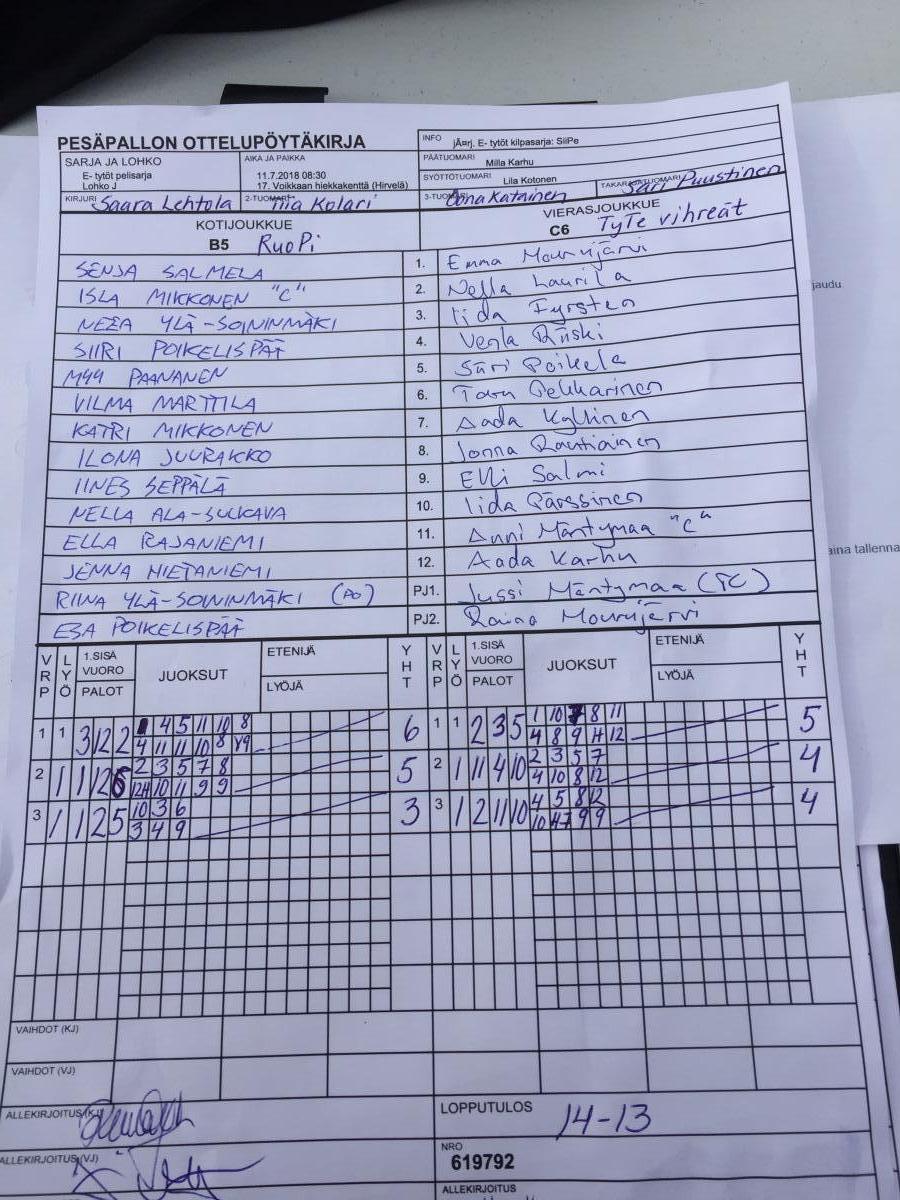 PESÄPALLON OTTELUPÖYTÄKIRJA
INFO jÃ¤rj. E- tytöt kilpasarja: SiiPe
SARJA JA LOHKO
E- tytöt pelisarja
Lohko J
AIKA JA PAIKKA
11.7.2018 08:30
17. Voikkaan hiekkakenttä (Hirvelä)
PÄÄTUOMARI Milla Karhu
SYÖTTÖTUOMARI Liia Kotonen
KIRJURI Saara Lehtola
2-TUOMARI Tiia Kolari
3-TUOMARI Oona Katainen
TAKARAJATUOMARI Sari Puustinen
KOTIJOUKKUE
B5 RuoPi
VIERASJOUKKUE
C6 TyTe vihreät
SENJA SALMELA 1. Emma Mourujärvi
ISLA MIKKONEN "C" 2. Nella Laurila
NEEA YLÄ-SOININMÄKI 3. Iida Fyrsten
SIIRI POIKELISPÄÄ 4. Venla Riiski
MYY PAANANEN 5. Sari Poikela
VILMA MARTTILA 6. Taru Pekkarinen
KATRI MIKKONEN 7. Aada Kyllinen
ILONA JUURAKKO 8. Jonna Rautiainen
IINES SEPPÄLÄ 9. Elli Salmi
NELLA ALA-SULKAVA 10. Iida Pärssinen
ELLA RAJANIEMI 11. Anni Mäntymaa "C"
JENNA HIETANIEMI 12. Aada Karhu
RIINA YLÄ-SOININMÄKI (PO) PJ1. Jussi Mäntymaa (TC)
ESA POIKELISPÄÄ PJ2. Raino Mourujärvi
VRP LYÖ 1.SISÄ VUORO PALOT JUOKSUT ETENIJÄ LYÖJÄ YHT VRP LYÖ 1.SISÄ VUORO PALOT JUOKSUT ETENIJÄ LYÖJÄ YHT
1 1 3 12 2 4 5 11 10 8 6 1 1 2 3 5 1 10 7 8 11 5
4 11 11 10 8 4 8 9 11 12
2 1 1 12 6 2 3 5 7 8 5 2 1 11 4 10 2 3 5 7 4
10 11 9 9 4 10 8 12
3 1 1 2 5 10 3 6 3 3 1 2 11 10 4 5 8 12 4
3 4 9 10 9 9
VAIHDOT (KJ)
VAIHDOT (VJ)
ALLEKIRJOITUS (KJ)
LOPPUTULOS 14-13
ALLEKIRJOITUS (VJ)
NRO
619792
ALLEKIRJOITUS
jaudu
aina tallenna